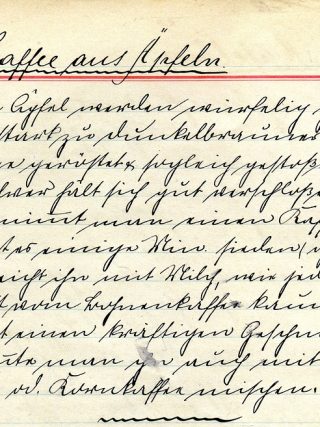 Kaffee aus Äpfeln.
Äpfel werden würfelig
stark zu dunkelbrauner
geröstet & sogleich gestoß
lver hält sich gut verschloß
nimmt man einen Kaf
t es einige Min. sieden (
eicht ihn mit Milch, wie jed
t vom Bohnenkaffee kaum
t einen kräftigen Geschm
man ihn auch mit
od. Kornkaffee mischen.